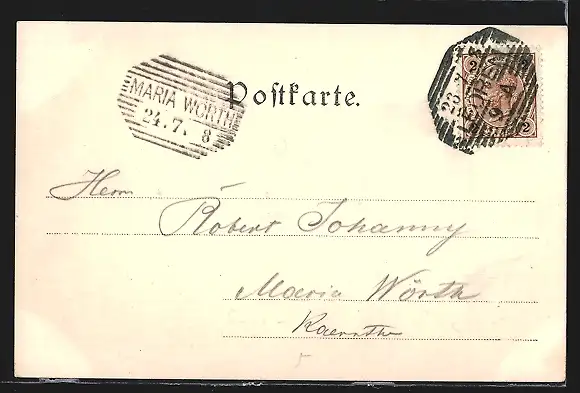 MARIA WÖRTH
24.7. 8
Postkarte.
2
2
Herrn
Robert Johanny
Maria Wörth
Kaernthe